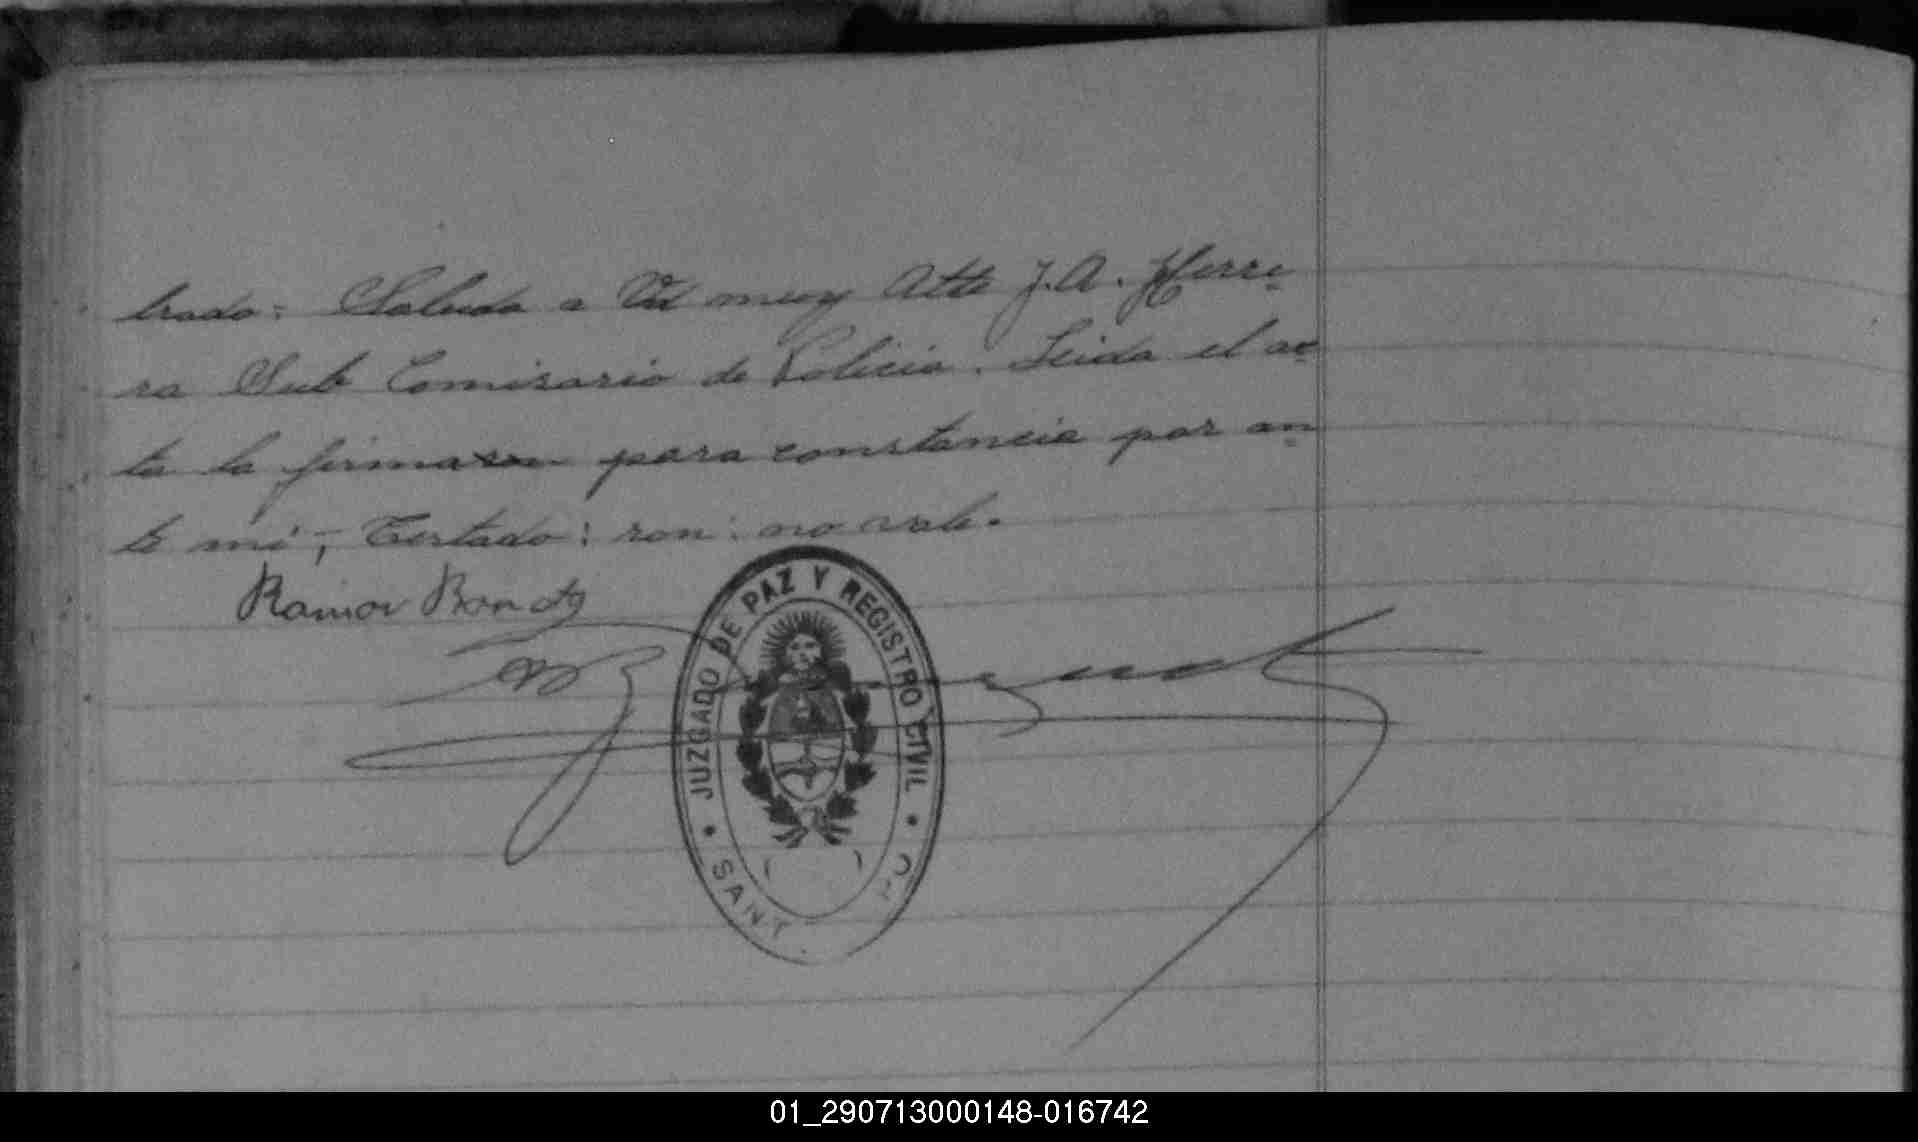 brado: Saluda a Ud muy Atte J. A. Herre-
ra Sub Comisario de Policia. Leida el ac-
ta la firmaron para constancia por an-
te mi, Testado: ron: no vale.
Ramon
JUZGADO DE PAZ Y REGISTRO CIVIL
SANT
01_290713000148-016742